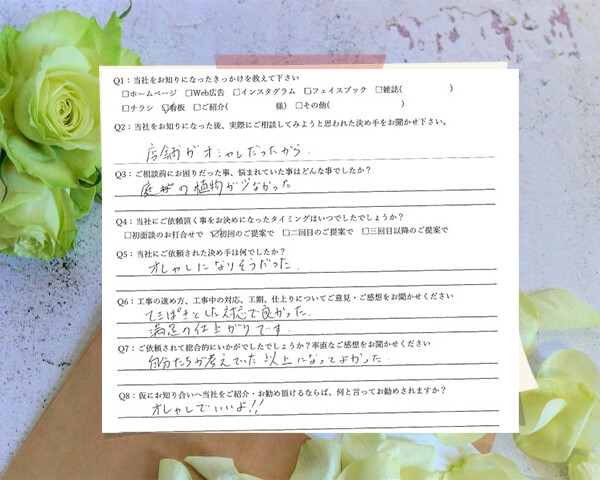 Q1：当社をお知りになったきっかけを教えて下さい
□ホームページ □Web広告 □インスタグラム □フェイスブック □雑誌(　　　　)
□チラシ ☑看板 □ご紹介(　　　　様) □その他(　　　　　　)
Q2：当社をお知りになった後、実際にご相談してみようと思われた決め手をお聞かせ下さい。
店舗がオシャレだったから.
Q3：ご相談前にお困りだった事、悩まれていた事はどんな事でしたか？
庭がの植物が少なかった
Q4：当社にご依頼頂く事をお決めになったタイミングはいつでしたでしょうか？
□初面談のお打合せで ☑初回のご提案で □二回目のご提案で □三回目以降のご提案で
Q5：当社にご依頼された決め手は何でしたか？
オシャレになりそうだった.
Q6：工事の進め方、工事中の対応、工期、仕上りについてご意見・ご感想をお聞かせください
てきぱきとした対応で良かった.
満足の仕上がりです.
Q7：ご依頼されて総合的にいかがでしたでしょうか？率直なご感想をお聞かせください
自分たちが考えていた以上になってよかった.
Q8：仮にお知り合いへ当社をご紹介・お勧め頂けるならば、何と言ってお勧めされますか？
オシャレでいいよ!!